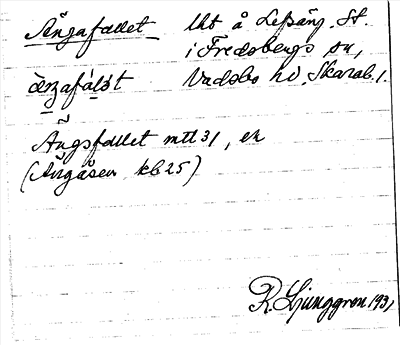 Ängafallet lht å Lefsäng, St.
i Fredsbergs sn,
Vadsbo hd, Skarab. l.
Ängsfallet mtl 31, en
(Ängåsen kb 25)
R. Ljunggren 1931